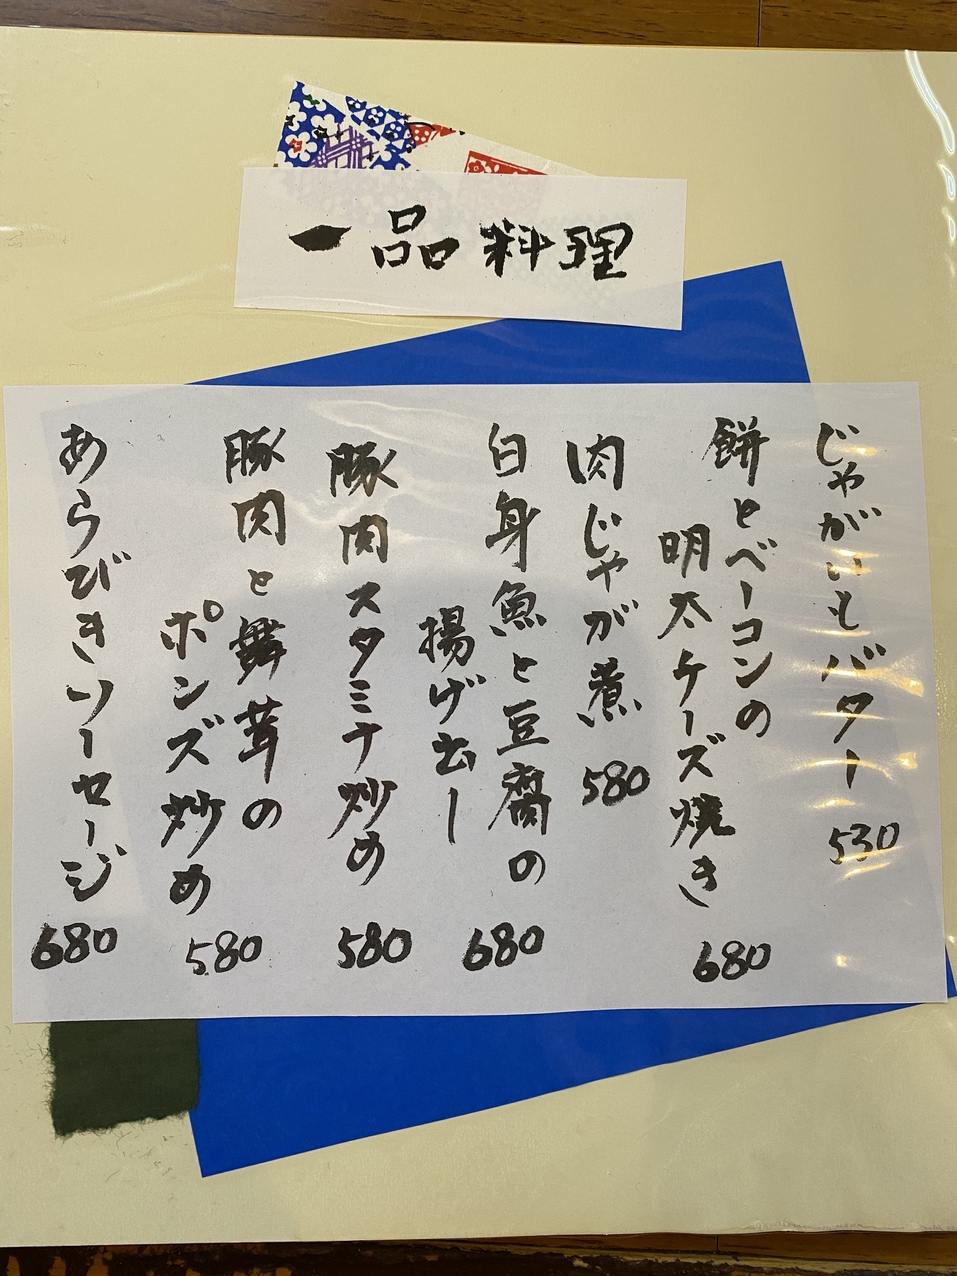 一品料理
じゃがいもバター 530
餅とベーコンの
明太チーズ焼き 680
肉じゃが煮 580
白身魚と豆腐の
揚げ出し 680
豚肉スタミナ炒め 580
豚肉と舞茸の
ポンズ炒め 580
あらびきソーセージ 680